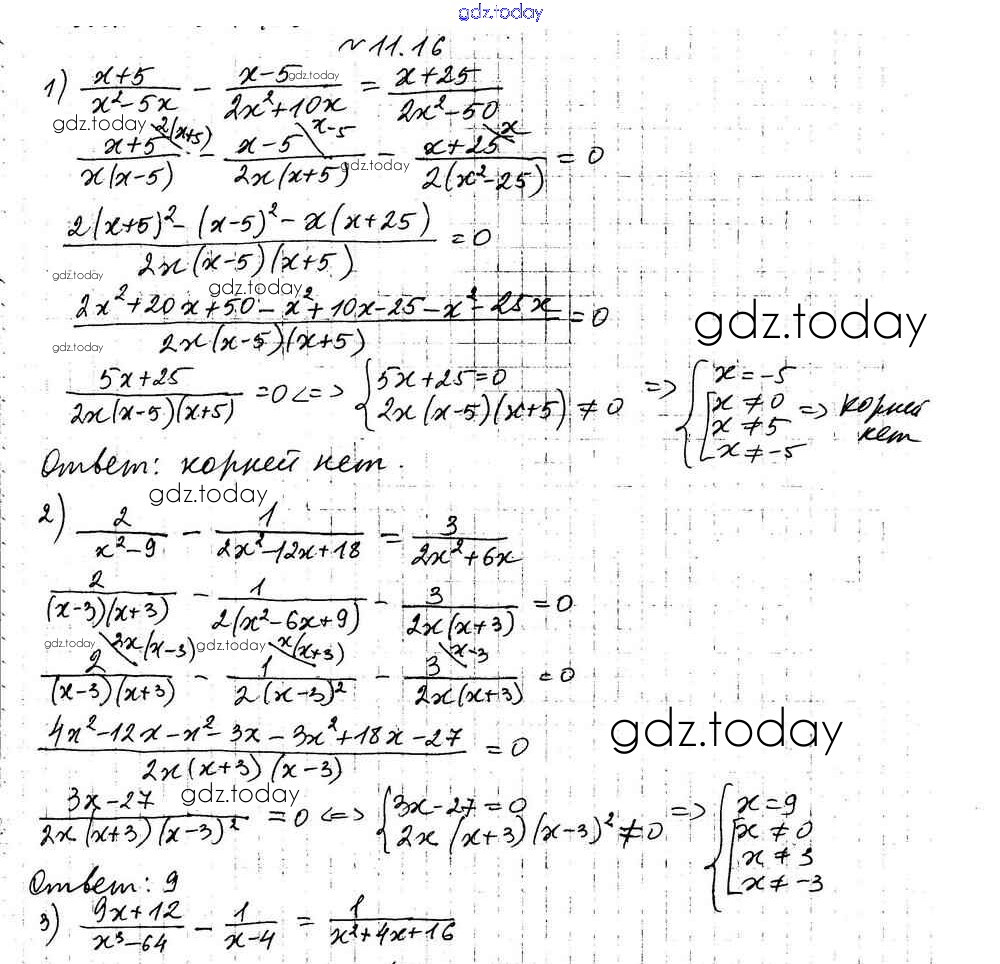 gdz.today
№ 11.16
1) (x+5)/(x²-5x) - (x-5)/(2x²+10x) = (x+25)/(2x²-50)
gdz.today
gdz.today
(x+5)/(x(x-5)) 2(x+5) - (x-5)/(2x(x+5)) x-5 - (x+25)/(2(x²-25)) x = 0
gdz.today
(2(x+5)²-(x-5)²-x(x+25))/(2x(x-5)(x+5)) = 0
gdz.today
gdz.today
(2x²+20x+50-x²+10x-25-x²-25x)/(2x(x-5)(x+5)) = 0
gdz.today
gdz.today
(5x+25)/(2x(x-5)(x+5)) = 0 <=> { 5x+25=0 2x(x-5)(x+5) ≠ 0 => { x=-5 [ x≠0 x≠5 x≠-5 => корней нет
Ответ: корней нет.
gdz.today
2) 2/(x²-9) - 1/(2x²-12x+18) = 3/(2x²+6x)
2/((x-3)(x+3)) - 1/(2(x²-6x+9)) - 3/(2x(x+3)) = 0
gdz.today
gdz.today
2/((x-3)(x+3)) 2x(x-3) - 1/(2(x-3)²) x(x+3) - 3/(2x(x+3)) x-3 = 0
gdz.today
(4x²-12x-x²-3x-3x²+18x-27)/(2x(x+3)(x-3)) = 0
gdz.today
(3x-27)/(2x(x+3)(x-3)²) = 0 <=> { 3x-27=0 2x(x+3)(x-3)² ≠ 0 => { x=9 [ x≠0 x≠3 x≠-3
Ответ: 9
3) (9x+12)/(x³-64) - 1/(x-4) = 1/(x²+4x+16)